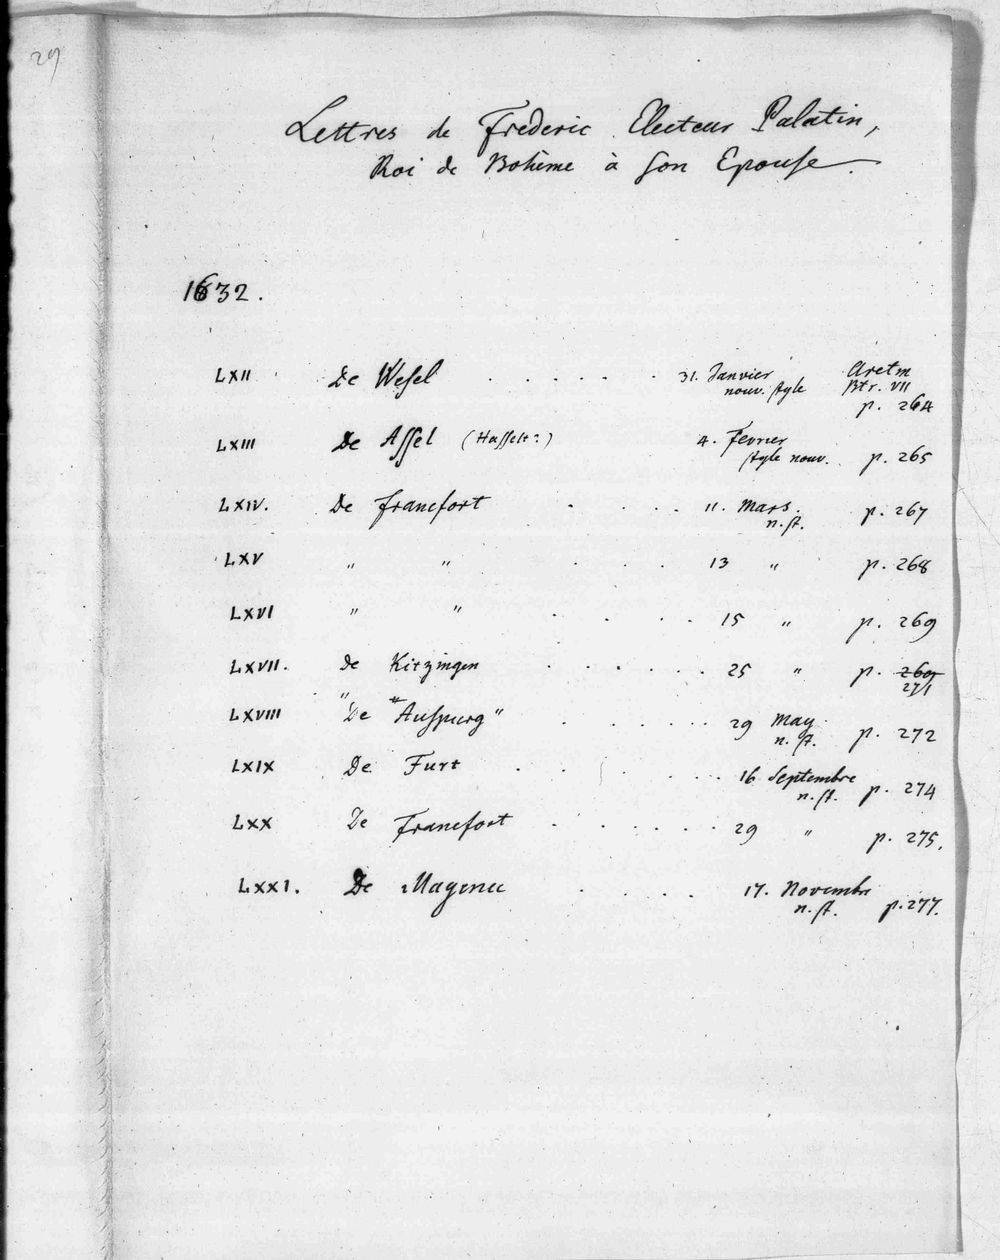 29
Lettres de Frederic Electeur Palatin,
Roi de Bohème à son Epouse.
1632.
LXII De Wesel . . . . . . 31. Janvier nouv. style Aretin Btr. VII p. 264
LXIII De Assel (Hasselt?) 4. Fevrier style nouv. p. 265
LXIV. De francfort . . . . 11. Mars. n. st. p. 267
LXV " " . . . 13 " p. 268
LXVI " " . . . . 15 " p. 269
LXVII. de Kitzingen . . . . 25 " p. 269 271
LXVIII "De "Auspurg" . . . . . 29 May n. st. p. 272
LXIX De Furt . . . . . . 16 Septembre n. st. p. 274
LXX De Francfort . . . . . . 29 " p. 275.
LXXI. De Mayence . . . . 17. Novembre n. st. p. 277.